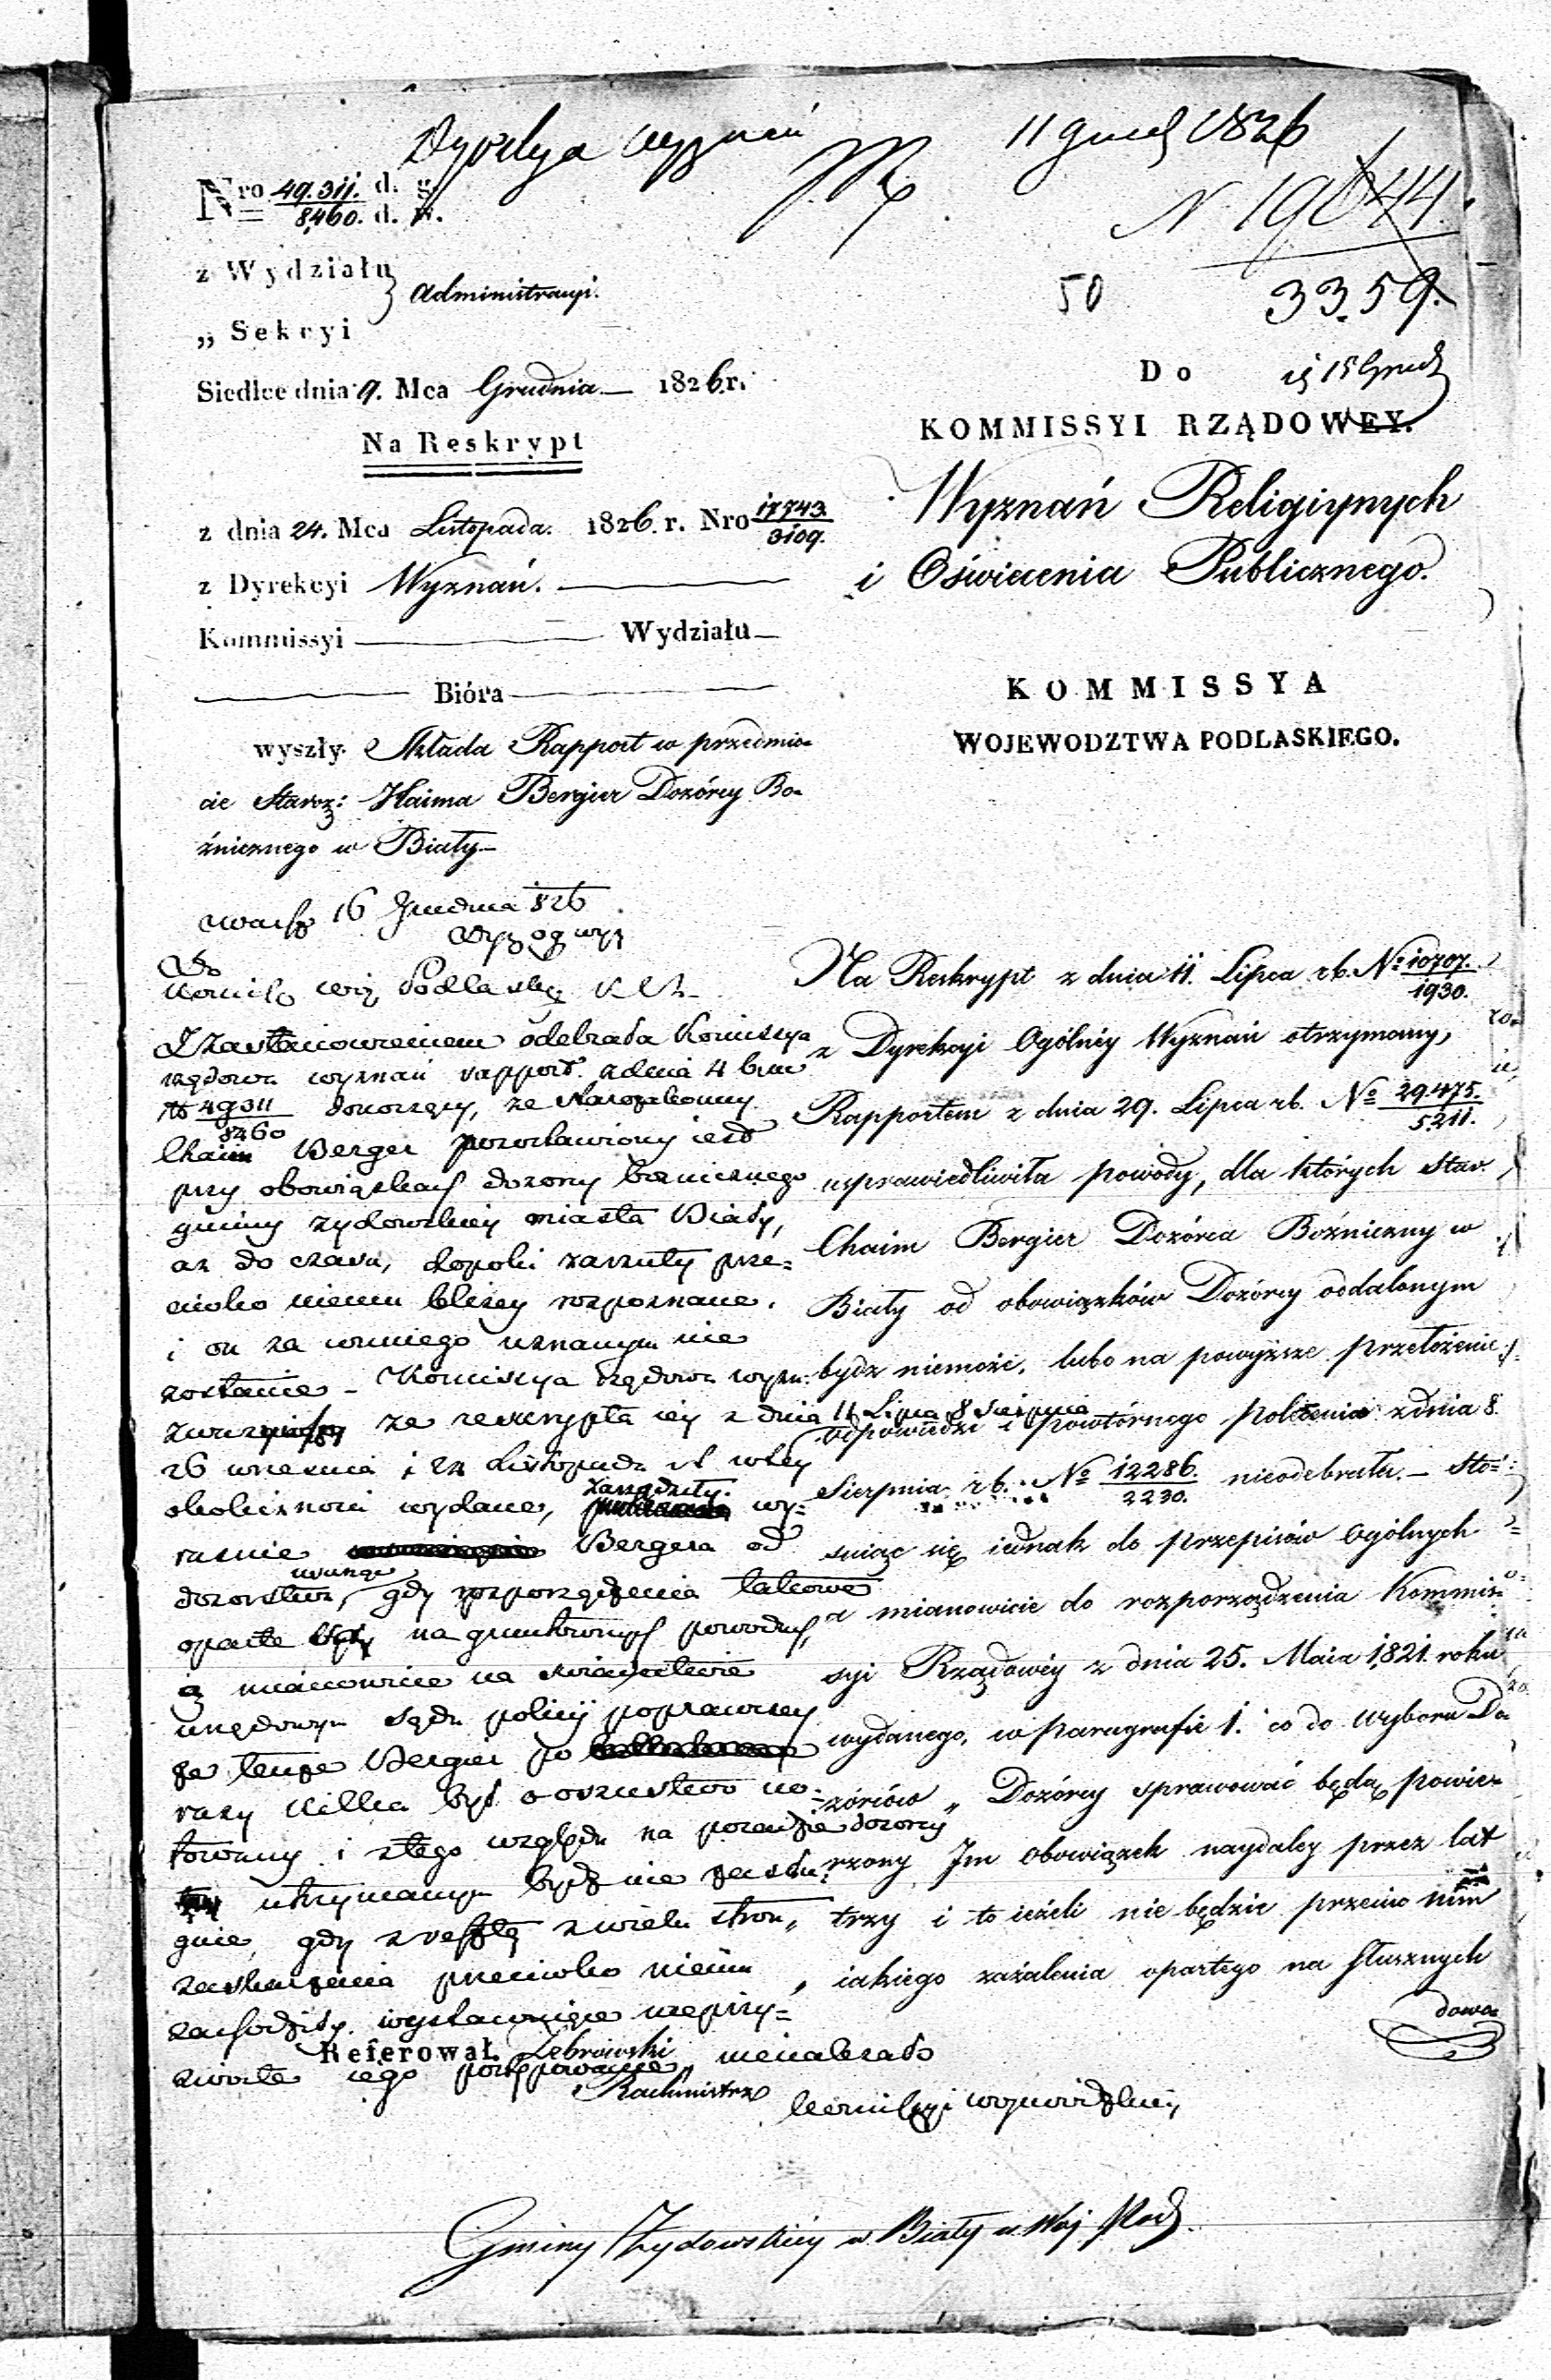 11 Grud 1826
N 19644
Nro 49.311. d. g.
8,460. d. w.
z Wydziału
Administracyi.
„ Sekcyi
50
33.59.
Siedlce dnia 9. Mca Grudnia 1826 r.
Do
15 Grud
KOMMISSYI RZĄDOWEY.
Na Reskrypt
Wyznań Religiynych
z dnia 24. Mca Listopada. 1826. r. Nro 17743.
3109.
i Oświecenia Publicznego.
z Dyrekcyi Wyznań.
Kommissyi Wydziału
Bióra
KOMMISSYA
WOJEWODZTWA PODLASKIEGO.
wyszły. Składa Rapport w przedmio-
cie Staroz: Haima Bergier Dozórcy Bo-
źnicznego w Biały
16 Grudnia 826
Do
Podlaskiey
Z zastanowieniem odebrała Komissya
rządowa wyznań rapport z dnia
No 49311
8460
donoszący, że starozakonny
Chaim Berger pozostawiony iest
przy obowiązkach dozorcy boznicznego
gminy zydowskiey miasta Biały,
az do czasu, dopoki zarzuty prze-
ciwko niemu bliżey rozpoznane.
i on za winnego uznanym nie
zostanie - Komissya rządowa wyzn:
zwazywszy ze reskrypta iey z dnia 11 Lipca, 8 Sierpnia
26 wrzesnia i 24 Listopada w tey
okoliczności wydane, zarządziły wy-
raznie usunięcie Bergera od
dozorstwa, gdy rozporządzenia takowe
oparte są na gruntownych powodach,
a mianowicie na świadectwie
urzędowym Sądu policyi poprawczey
że tenże Bergier po
razy kilka był o oszustwo no-
towany i z tego względu na posadzie dozorcy
utrzymanym bydź nie zasłu-
guie, gdy zresztą z wielu stron
zaskarżenia przeciwko niemu
zachodziły. wystawuiące nieprzy-
zwoite iego postępowanie, nienależało
Kommissyi woiewódzkiey
Na Reskrypt z dnia 11. Lipca rb. No 10707.
1930.
z Dyrekcyi Ogólney Wyznań otrzymany,
Rapportem z dnia 29. Lipca rb. No 29475.
5211.
usprawiedliwiła powody, dla których Star.
Chaim Bergier Dozórca Boźniczny w
Biały od obowiązków Dozórcy oddalonym
bydz niemoże, lubo na powyższe przełożenie
odpowiedzi i powtórnego polecenia z dnia 8.
Sierpnia rb. No 12286.
2230.
nieodebrała. - Sto-
suiąc się iednak do przepisów ogólnych
a mianowicie do rozporządzenia Kommis-
syi Rządowéy z dnia 25. Maia 1821. roku
wydanego, w paragrafie 1. co do wyboru Do-
zórców „ Dozórcy sprawować będą powie-
rzony Im obowiązek naydaley przez lat
„ trzy i to ieżeli nie będzie przeciw nim
„ iakiego zażalenia opartego na słusznych
dowo-
Referował Żebrowski
Rachmistrz
Gminy Żydowskiéy w Biały w Woj Pod.